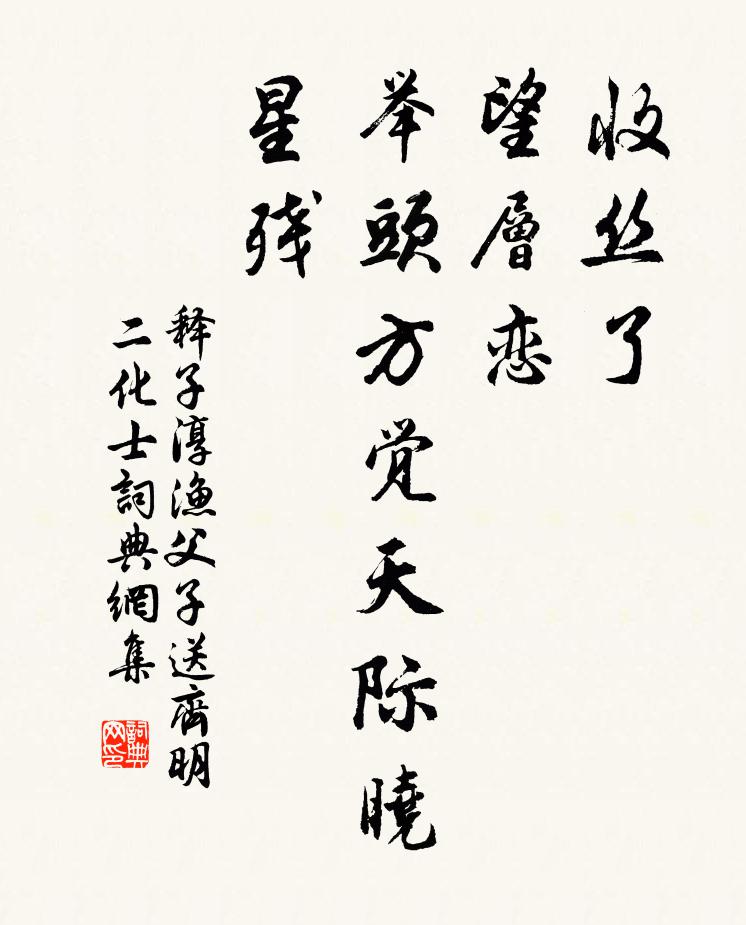 收丝了
望層恋
举頭方觉天际曉
星残
释子淳漁父子送齊明
二化士詞典網集
詞典网印